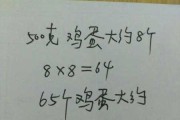 500克鸡蛋大约8个
8×8=64
65个鸡蛋大约